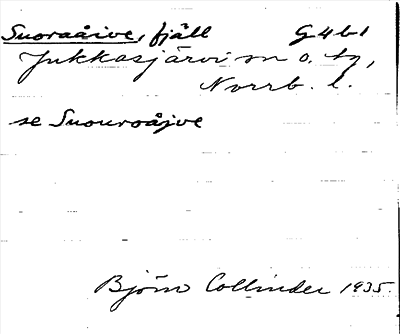 Suoraåive, fjäll G4b1
Jukkasjärvi sn o. tg,
Norrb. l.
se Suouroåjve
Björn Collinder 1935